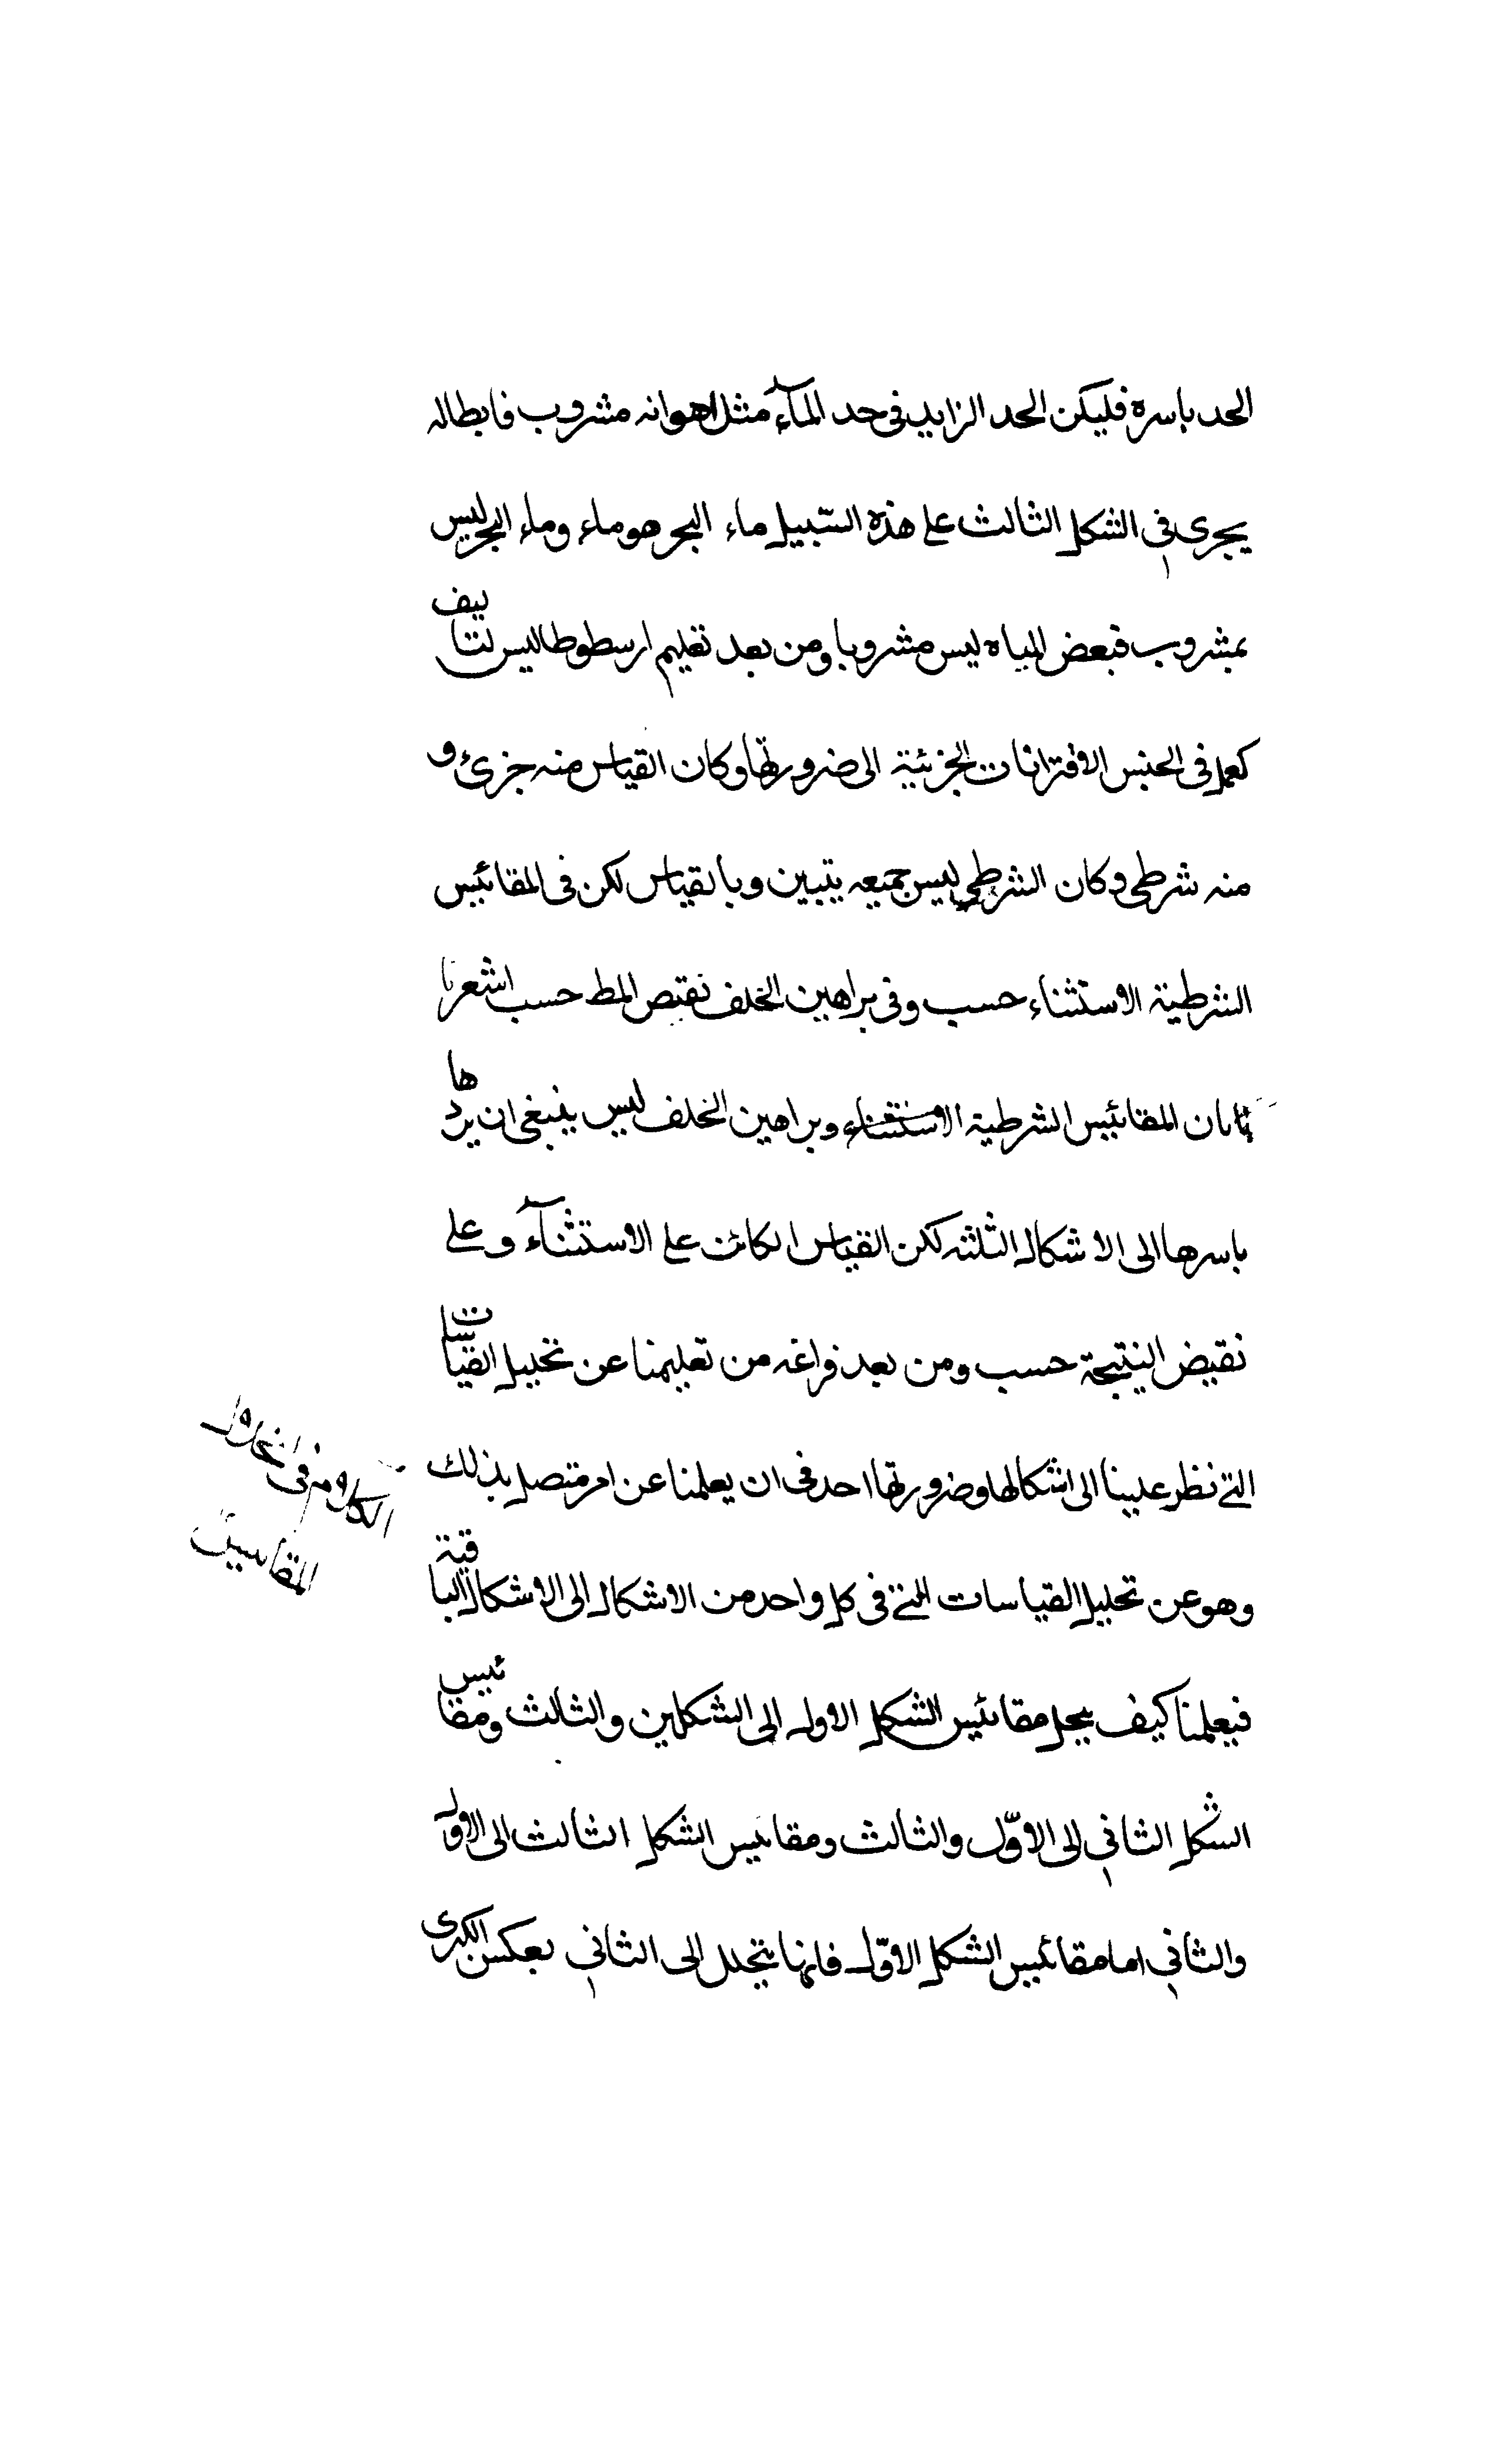 الحد باسره فليكن الحد الزايد في حد المآء مثل هو انه مشروب فابطاله
يجرى في الشكل الثالث على هذه السّبيل ماء البحر هو ماء وماء البحر ليس
بمشروب فبعض المياه ليس مشروبا ومن بعد تعليم ارسطوطاليس لتاليف
كعمل في الجنس الاقترانات الجزئية الى ضرورتها وكان القياس منه جزئ و
منه شرطى وكان الشرطي ليس جميعه يتبين وبالقياس لكن في المقائيس
الشرطية الاستثناء حسب وفى براهين الخلف نقيض المط حسب اشعرنا
بان المقائيس الشرطية الاستثناء وبراهين الخلف ليس ينبغى ان يردها
باسرها الى الاشكال الثلثه لكن القياس الكائن على الاستثنآء وعلى
نقيض النتيجة حسب ومن بعد فراغه من تعليمنا عن تحليل القياسات
التى نظر علينا الى اشكالها وضرورتها احد فى ان يعلمنا عن امر متصل بذلك
وهو عن تحليل القياسات التى فى كل واحد من الاشكال الى الاشكال الباقية
فيعلمنا كيف يحل مقائيس الشكل الاول الى الشكلين والثالث ومقائيس
الشكل الثاني الى الاوّل والثالث ومقائيس الشكل الثالث الى الاول
والثاني اما مقائيس الشكل الاوّل فانها يتحلل الى الثاني بعكس الكبرى
الكلام فى انحلال
المقاييس